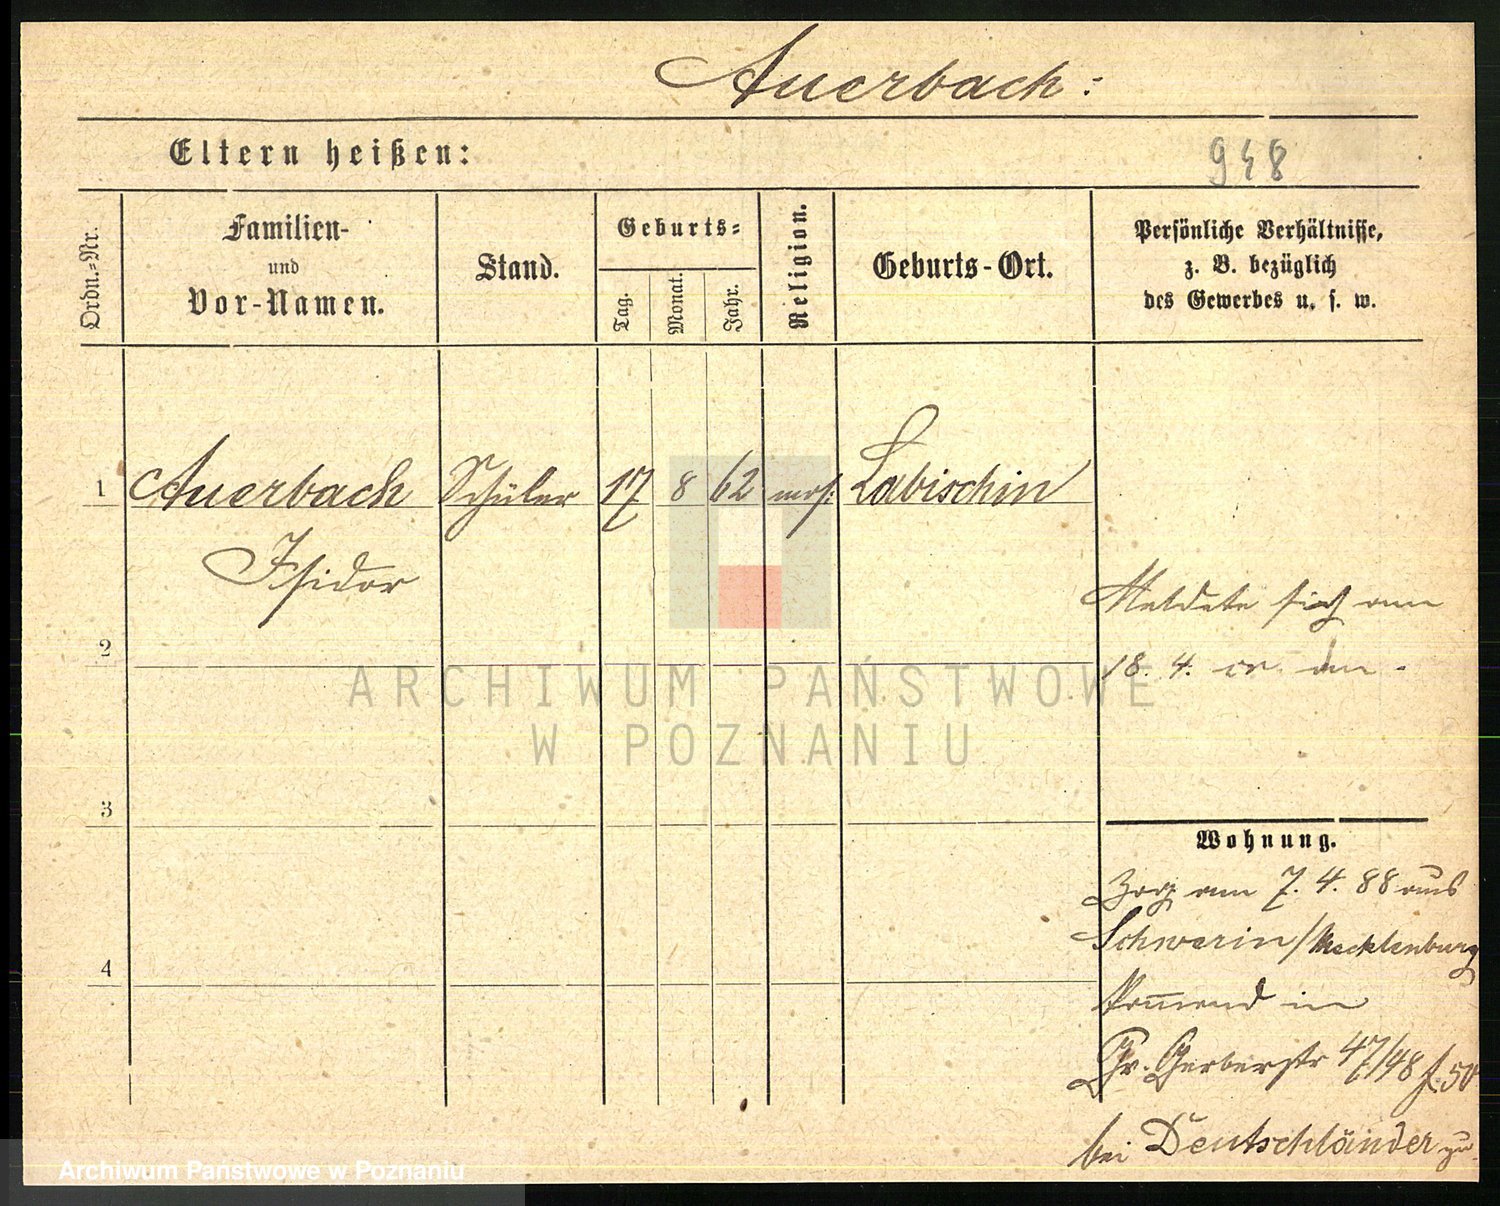 Auerbach:
Eltern heißen:
948
Ordn.=Nr.
Familien-
und
Vor-Namen.
Stand.
Geburts=
Tag.
Monat.
Jahr.
Religion.
Geburts-Ort.
Persönliche Verhältnisse,
z. B. bezüglich
des Gewerbes u. s. w.
1 Auerbach Schüler 17 8 62 mos: Labischin
Isidor
Meldete sich am
18. 4. cr. an.
2
ARCHIWUM PAŃSTWOWE
W POZNANIU
3
Wohnung.
Zog am 7. 4. 88 aus
Schwerin/Mecklenburg
4
kommend in
Gr. Gerberstr 47/48 f. 50
bei Deutschländer zu.
Archiwum Państwowe w Poznaniu